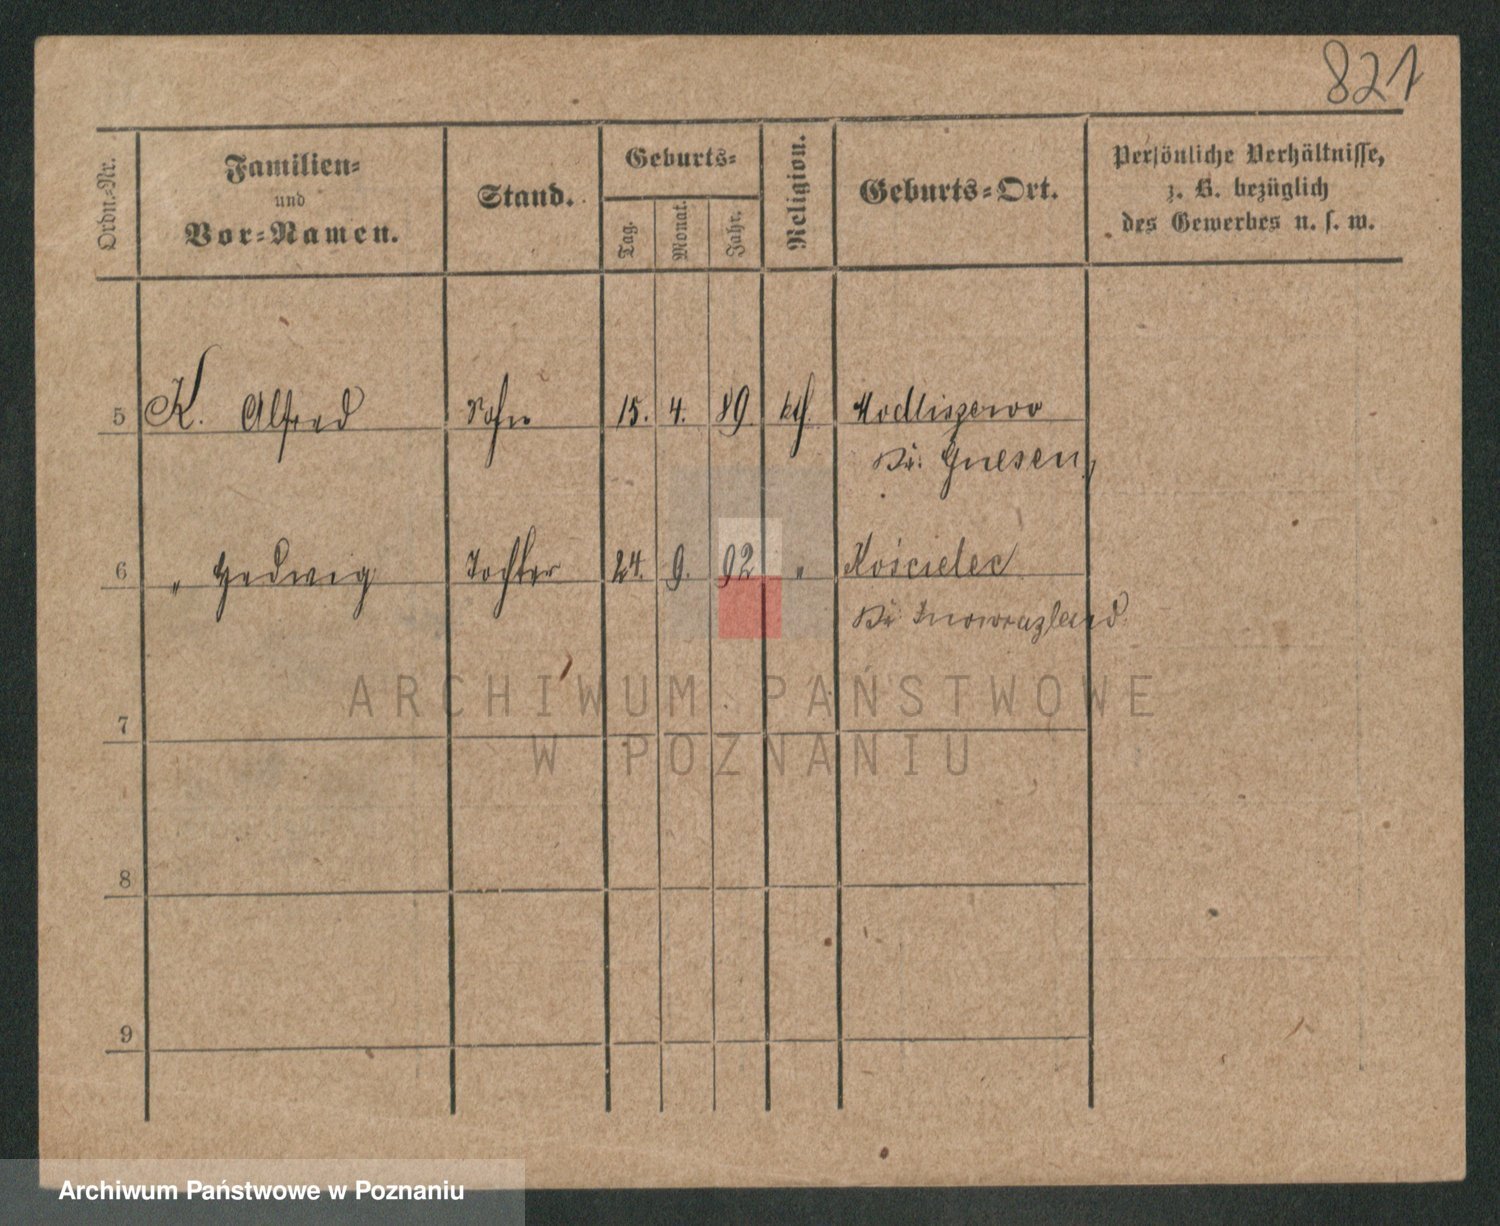 821
Ordn.-Nr.
Familien-
und
Vor-Namen.
Stand.
Geburts-
Tag.
Monat.
Jahr.
Religion.
Geburts-Ort.
Persönliche Verhältnisse,
z. B. bezüglich
des Gewerbes u. s. w.
5 K. Alfred Sohn 15. 4. 89. kth. Modliszewo
Kr. Gnesen,
6 " Hedwig Tochter 24. 9. 92 " Kościelec
Kr. Inowrazlaw
7
8
9
ARCHIWUM PAŃSTWOWE
W POZNANIU
Archiwum Państwowe w Poznaniu